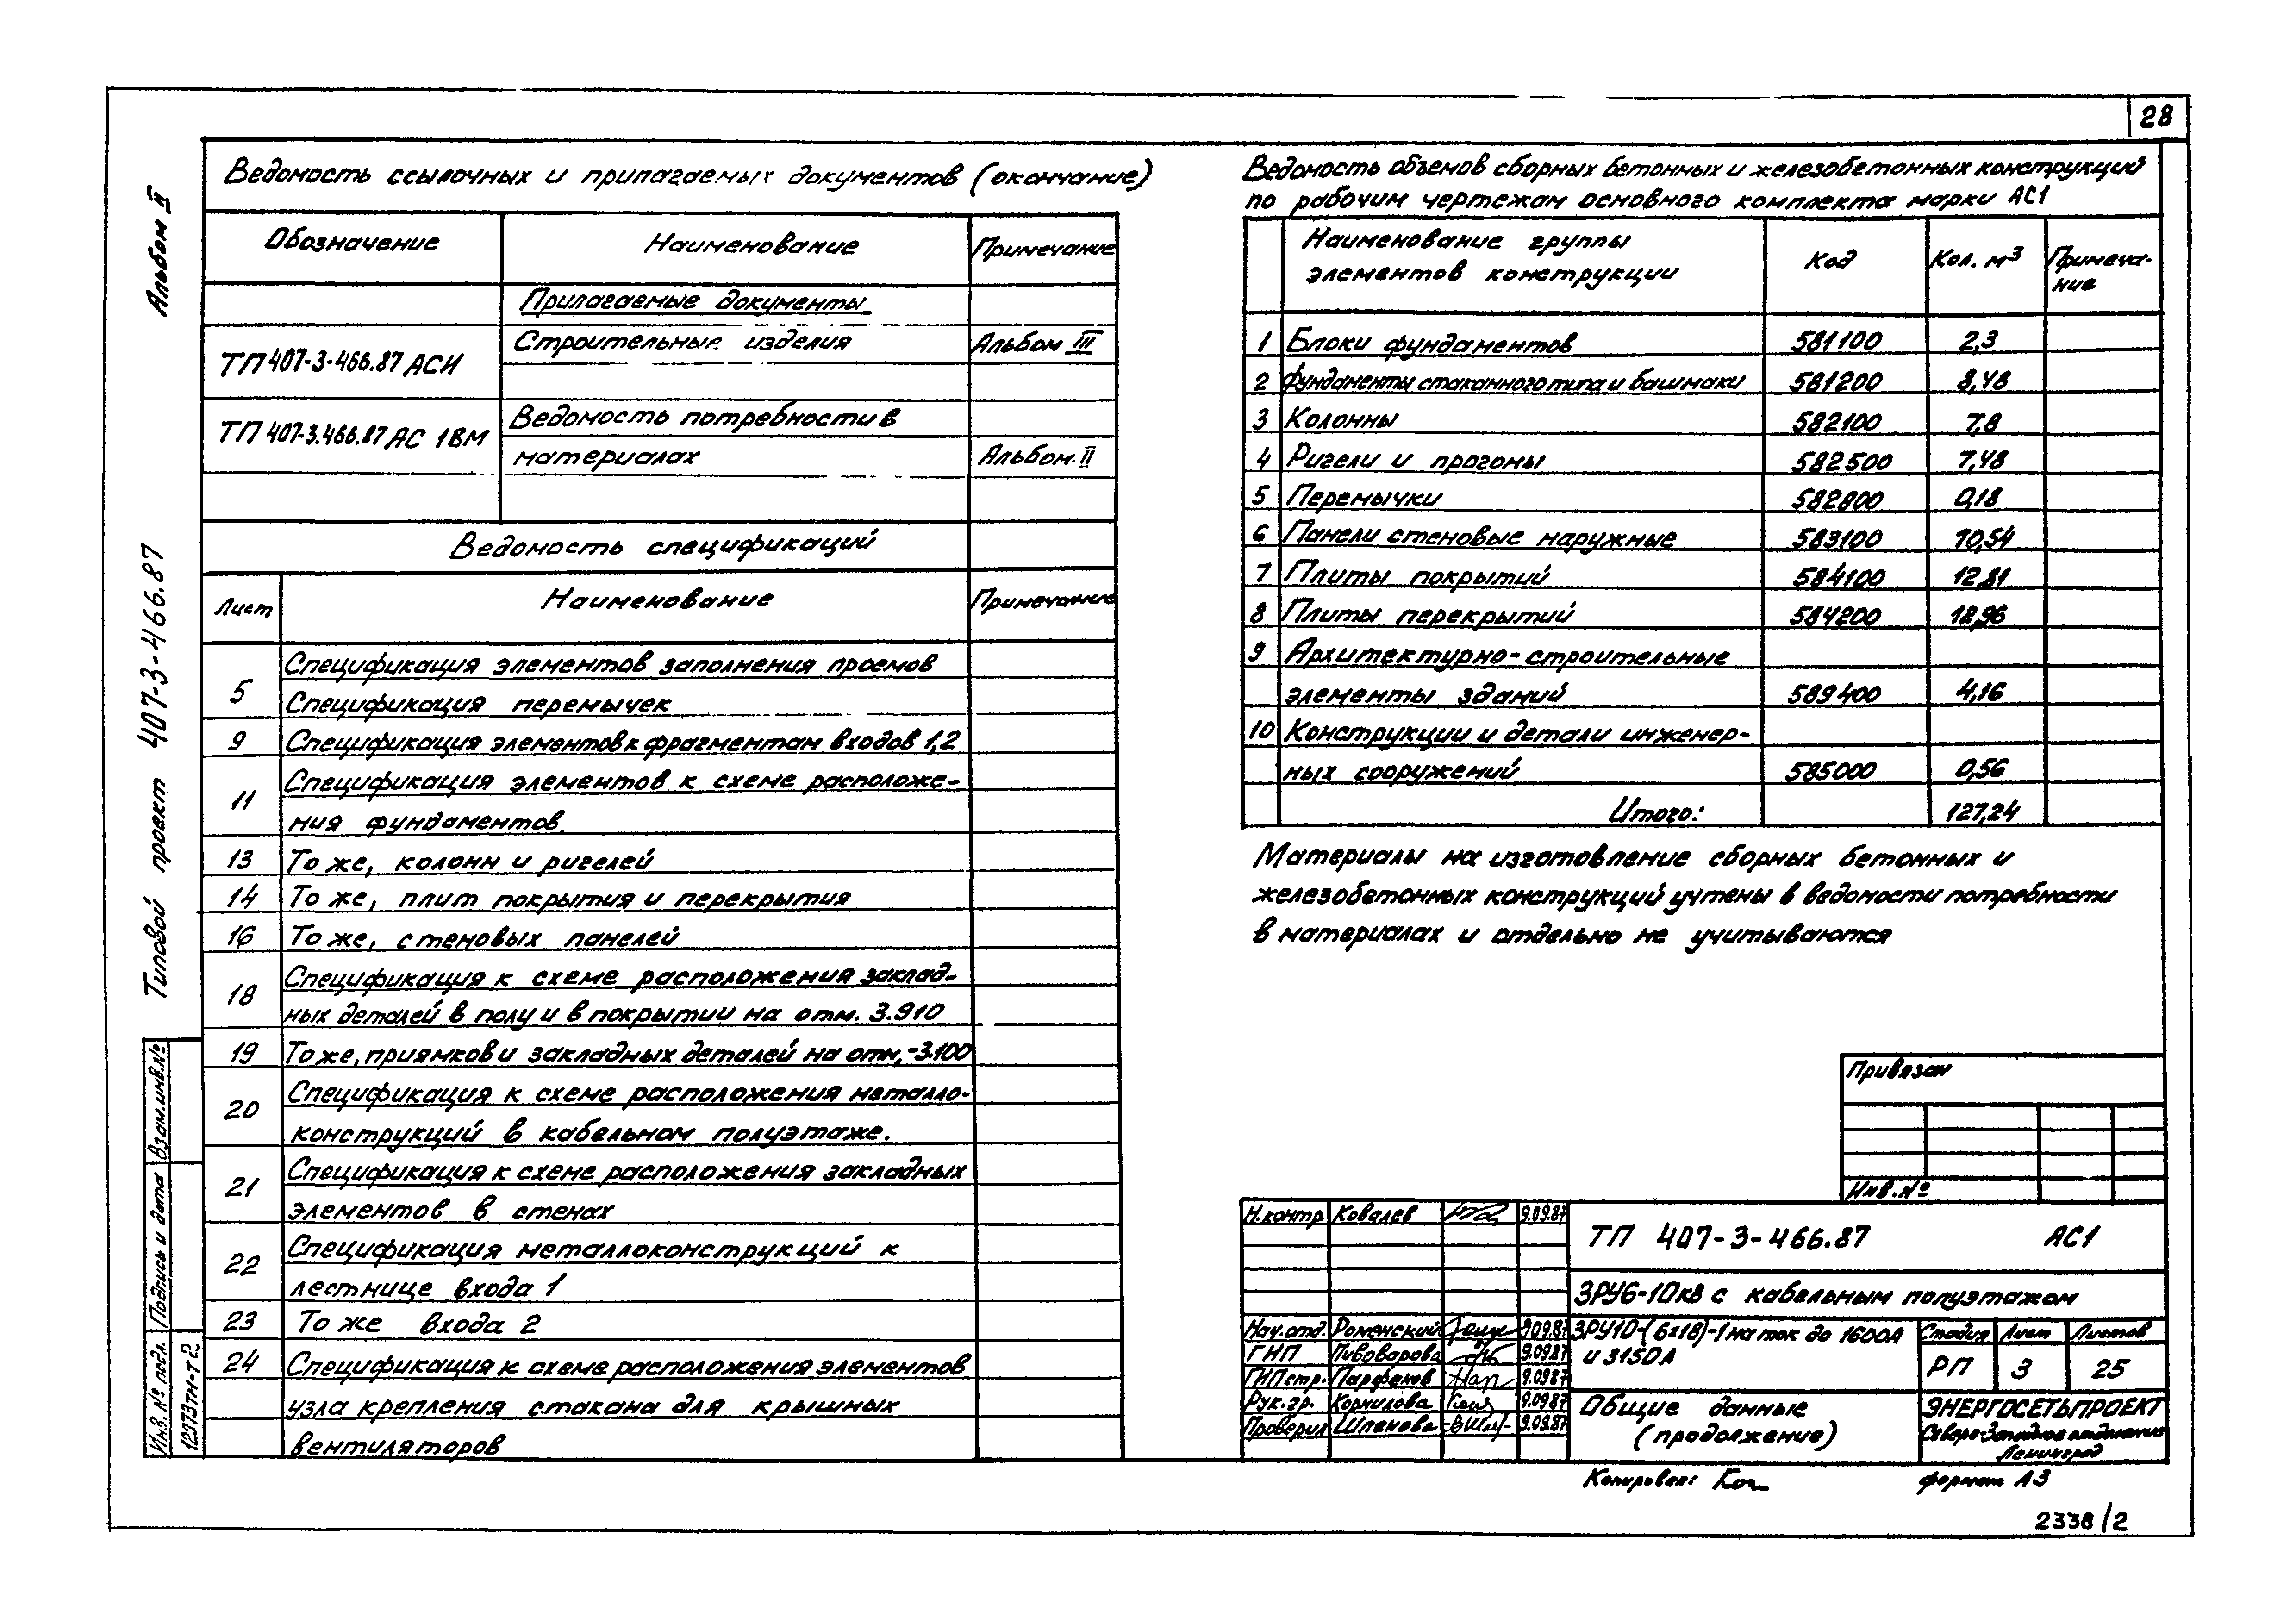 28
Альбом II
Типовой проект 407-3-466.87
Ведомость ссылочных и прилагаемых документов (окончание)
Обозначение Наименование Примечание
Прилагаемые документы
ТП 407-3-466.87 АСИ Строительные изделия Альбом III
ТП 407-3.466.87 АС 1ВМ Ведомость потребности в
материалах Альбом II
Ведомость спецификаций
Лист Наименование Примечание
5 Спецификация элементов заполнения проемов
Спецификация перемычек
9 Спецификация элементов к фрагментам входов 1,2
11 Спецификация элементов к схеме расположе-
ния фундаментов
13 То же, колонн и ригелей
14 То же, плит покрытия и перекрытия
16 То же, стеновых панелей
18 Спецификация к схеме расположения заклад-
ных деталей в полу и в покрытии на отм. 3.910
19 То же, приямков и закладных деталей на отм,-3.100
20 Спецификация к схеме расположения металло-
конструкций в кабельном полуэтаже.
21 Спецификация к схеме расположения закладных
элементов в стенах
22 Спецификация металлоконструкций к
лестнице входа 1
23 То же входа 2
24 Спецификация к схеме расположения элементов
узла крепления стакана для крышных
вентиляторов
Ведомость объемов сборных бетонных и железобетонных конструкций
по рабочим чертежам основного комплекта марки АС1
Наименование группы
элементов конструкции Код Кол. м3 Примеча-
ние
1 Блоки фундаментов 581100 2,3
2 Фундаменты стаканного типа и башмаки 581200 8,48
3 Колонны 582100 7,8
4 Ригели и прогоны 582500 7,48
5 Перемычки 582800 0,18
6 Панели стеновые наружные 583100 70,54
7 Плиты покрытий 584100 12,81
8 Плиты перекрытий 584200 12,96
9 Архитектурно-строительные
элементы зданий 589400 4,16
10 Конструкции и детали инженер-
ных сооружений 585000 0,56
Итого: 127,24
Материалы на изготовление сборных бетонных и
железобетонных конструкций учтены в ведомости потребности
в материалах и отдельно не учитываются
Привязан
Инв. №
Н.контр Ковалев 9.09.87
ТП 407-3-466.87 АС1
ЗРУ6-10кв с кабельным полуэтажом
Нач.отд. Роменский 9.09.87
ГИП Пивоварова 9.09.87
ГИП стр. Парфенов 9.09.87
Рук.гр. Корнилова 9.09.87
Проверил Шпанова 9.09.87
ЗРУ10-(6х18)-1 на ток до 1600А
и 3150А
Стадия Лист Листов
РП 3 25
Общие данные
(продолжение)
ЭНЕРГОСЕТЬПРОЕКТ
Северо-Западное отделение
Ленинград
Копировал:
формат А3
2338/2
Взам.инв.№
Подпись и дата
Инв. № подл.
12573тм-т2